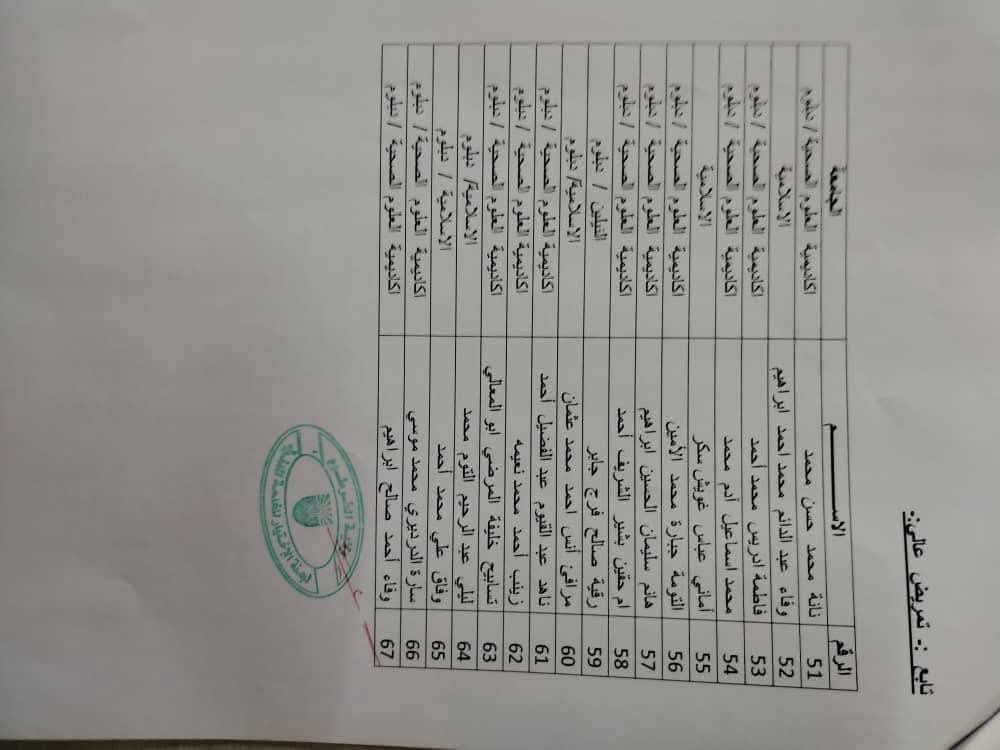 تابع :- تمريض عالي:-
الرقم الاســـــــــم الجامعة
51 نانة محمد حسن محمد اكاديمية العلوم الصحية / دبلوم
52 وفاء عبد الدائم محمد احمد ابراهيم الإسلامية
53 فاطمة ادريس محمد أحمد اكاديمية العلوم الصحية / دبلوم
54 محمد اسماعيل آدم محمد اكاديمية العلوم الصحية / دبلوم
55 أماني عباس غويش سكر الإسلامية
56 التومة جبارة محمد الأمين اكاديمية العلوم الصحية / دبلوم
57 هانم سليمان الحسين ابراهيم اكاديمية العلوم الصحية / دبلوم
58 ام حقين بشير الشريف أحمد اكاديمية العلوم الصحية / دبلوم
59 رقية صالح فرج جابر النيلين / دبلوم
60 مرافئ أنس احمد محمد عثمان الإسلامية/ دبلوم
61 ناهد عبد القيوم عبد الفضيل أحمد اكاديمية العلوم الصحية / دبلوم
62 زينب أحمد محمد نعيمه اكاديمية العلوم الصحية / دبلوم
63 تسابيح خليفة المرضي ابو المعالي اكاديمية العلوم الصحية / دبلوم
64 ليلي عبد الرحيم التوم محمد الإسلامية/ دبلوم
65 وفاق علي محمد أحمد الاسلامية / دبلوم
66 سارة الدرديري محمد موسي اكاديمية العلوم الصحية / دبلوم
67 وفاء أحمد صالح ابراهيم اكاديمية العلوم الصحية / دبلوم